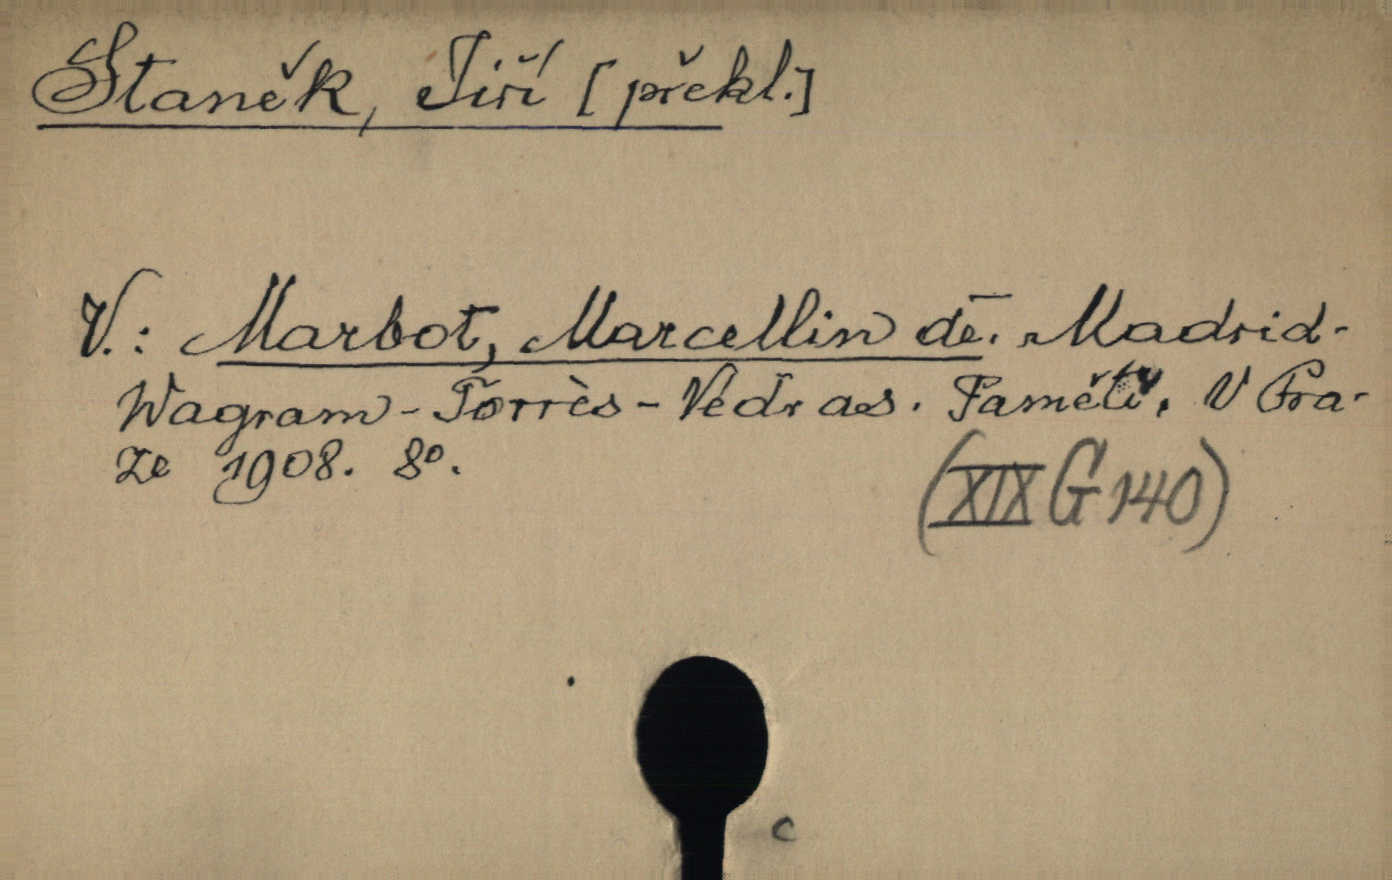 Staněk, Jiří [překl.]
V.: Marbot, Marcellin de. Madrid-
Wagram-Torrès-Védras. Paměti. V Pra-
ze 1908. 8°.
(XIX G 140)
c